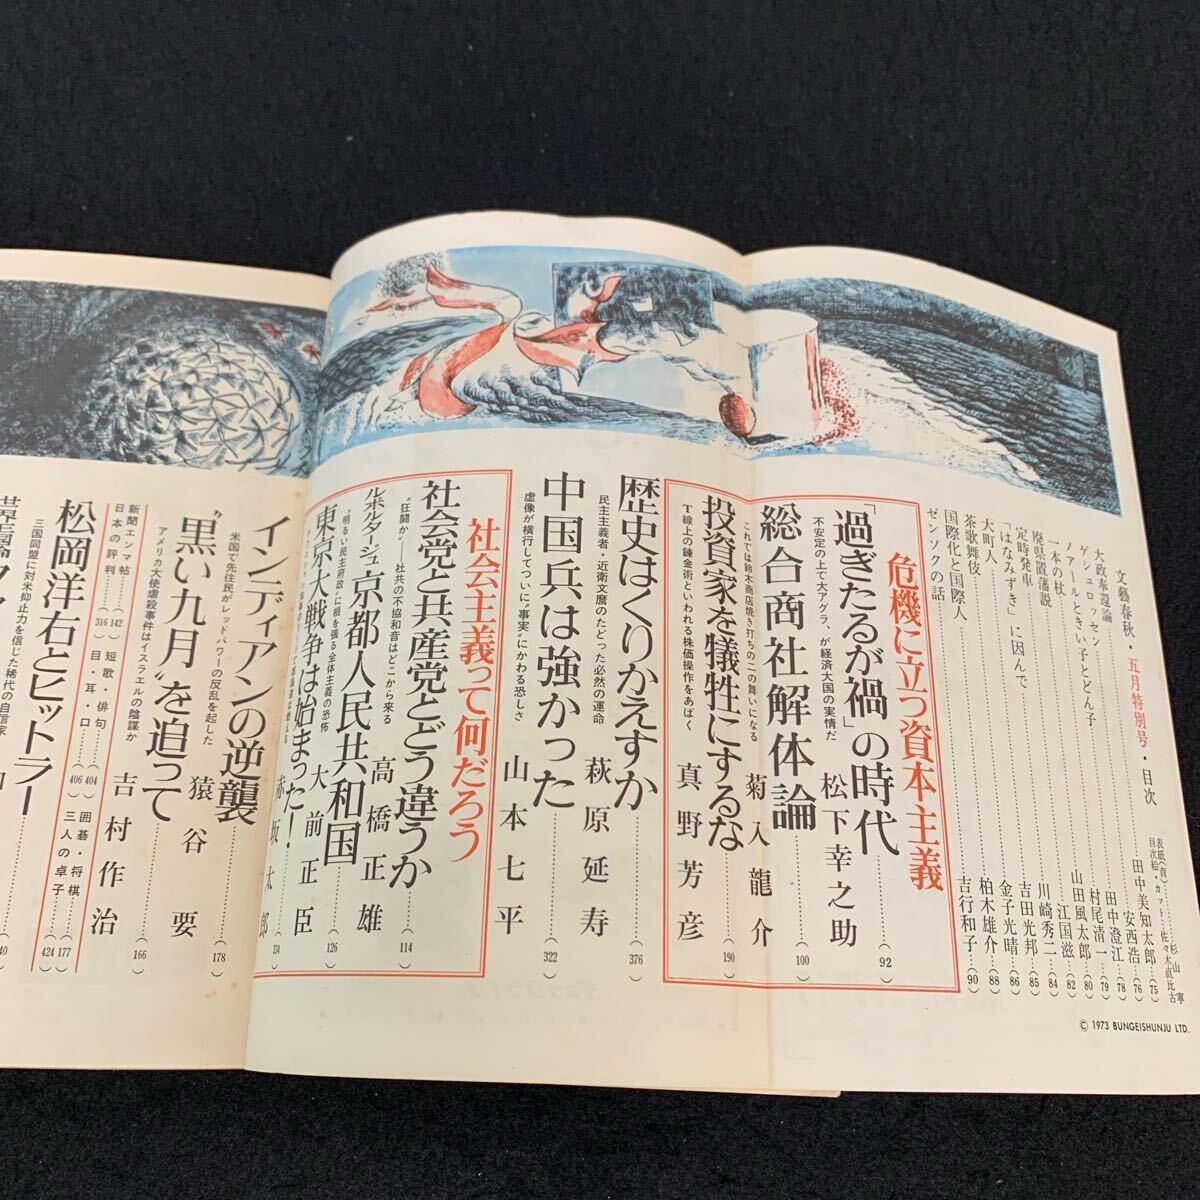 文藝春秋・五月特別号・目次
表紙(頁)・杉山 寧
目次絵・カット・佐々木直比古
大政奉還論……田中美知太郎(75)
ゲシュロッセン……安西浩(76)
ノアールときい子とどん子……田中澄江(78)
一本の杖……村尾清一(79)
廃県置藩説……山田風太郎(80)
定時発車……江国滋(82)
「はなみずき」に因んで……川崎秀二(84)
大町人……吉田光邦(85)
茶歌舞伎……金子光晴(86)
国際化と国際人……柏木雄介(88)
ゼンソクの話……吉行和子(90)
危機に立つ資本主義
「過ぎたるが禍」の時代……(92)
不安定の上で大アグラ、が経済大国の実情だ
松下幸之助
総合商社解体論……(100)
これでは鈴木商店焼き打ちの二の舞いになる
菊入龍介
投資家を犠牲にするな……(190)
T線上の錬金術といわれる株価操作をあばく
真野芳彦
歴史はくりかえすか……(376)
民主主義者・近衛文麿のたどった必然の運命
萩原延寿
中国兵は強かった……(322)
虚像が横行してついに"事実"にかわる恐しさ
山本七平
社会主義って何だろう
社会党と共産党とどう違うか……(114)
"狂闘か"——社共の不協和音はどこから来る
高橋正雄
ルポルタージュ 京都人民共和国……(126)
"明るい民主府政"に根を張る全体主義の恐怖
大前正臣
東京大戦争は始まった!……(324)
赤坂太郎
インディアンの逆襲……(178)
米国で先住民がレッドパワーの反乱を起した
猿谷 要
"黒い九月"を追って……(166)
アメリカ大使虐殺事件はイスラエルの陰謀か
吉村作治
新聞エンマ帖……(142) 短歌・俳句……(404) 囲碁・将棋……(177)
日本の評判……(316) 目・耳・口……(406) 三人の卓子……(424)
松岡洋右とヒットラー
三国同盟に対米抑止力を信じた稀代の自信家
© 1973 BUNGEISHUNJU LTD.